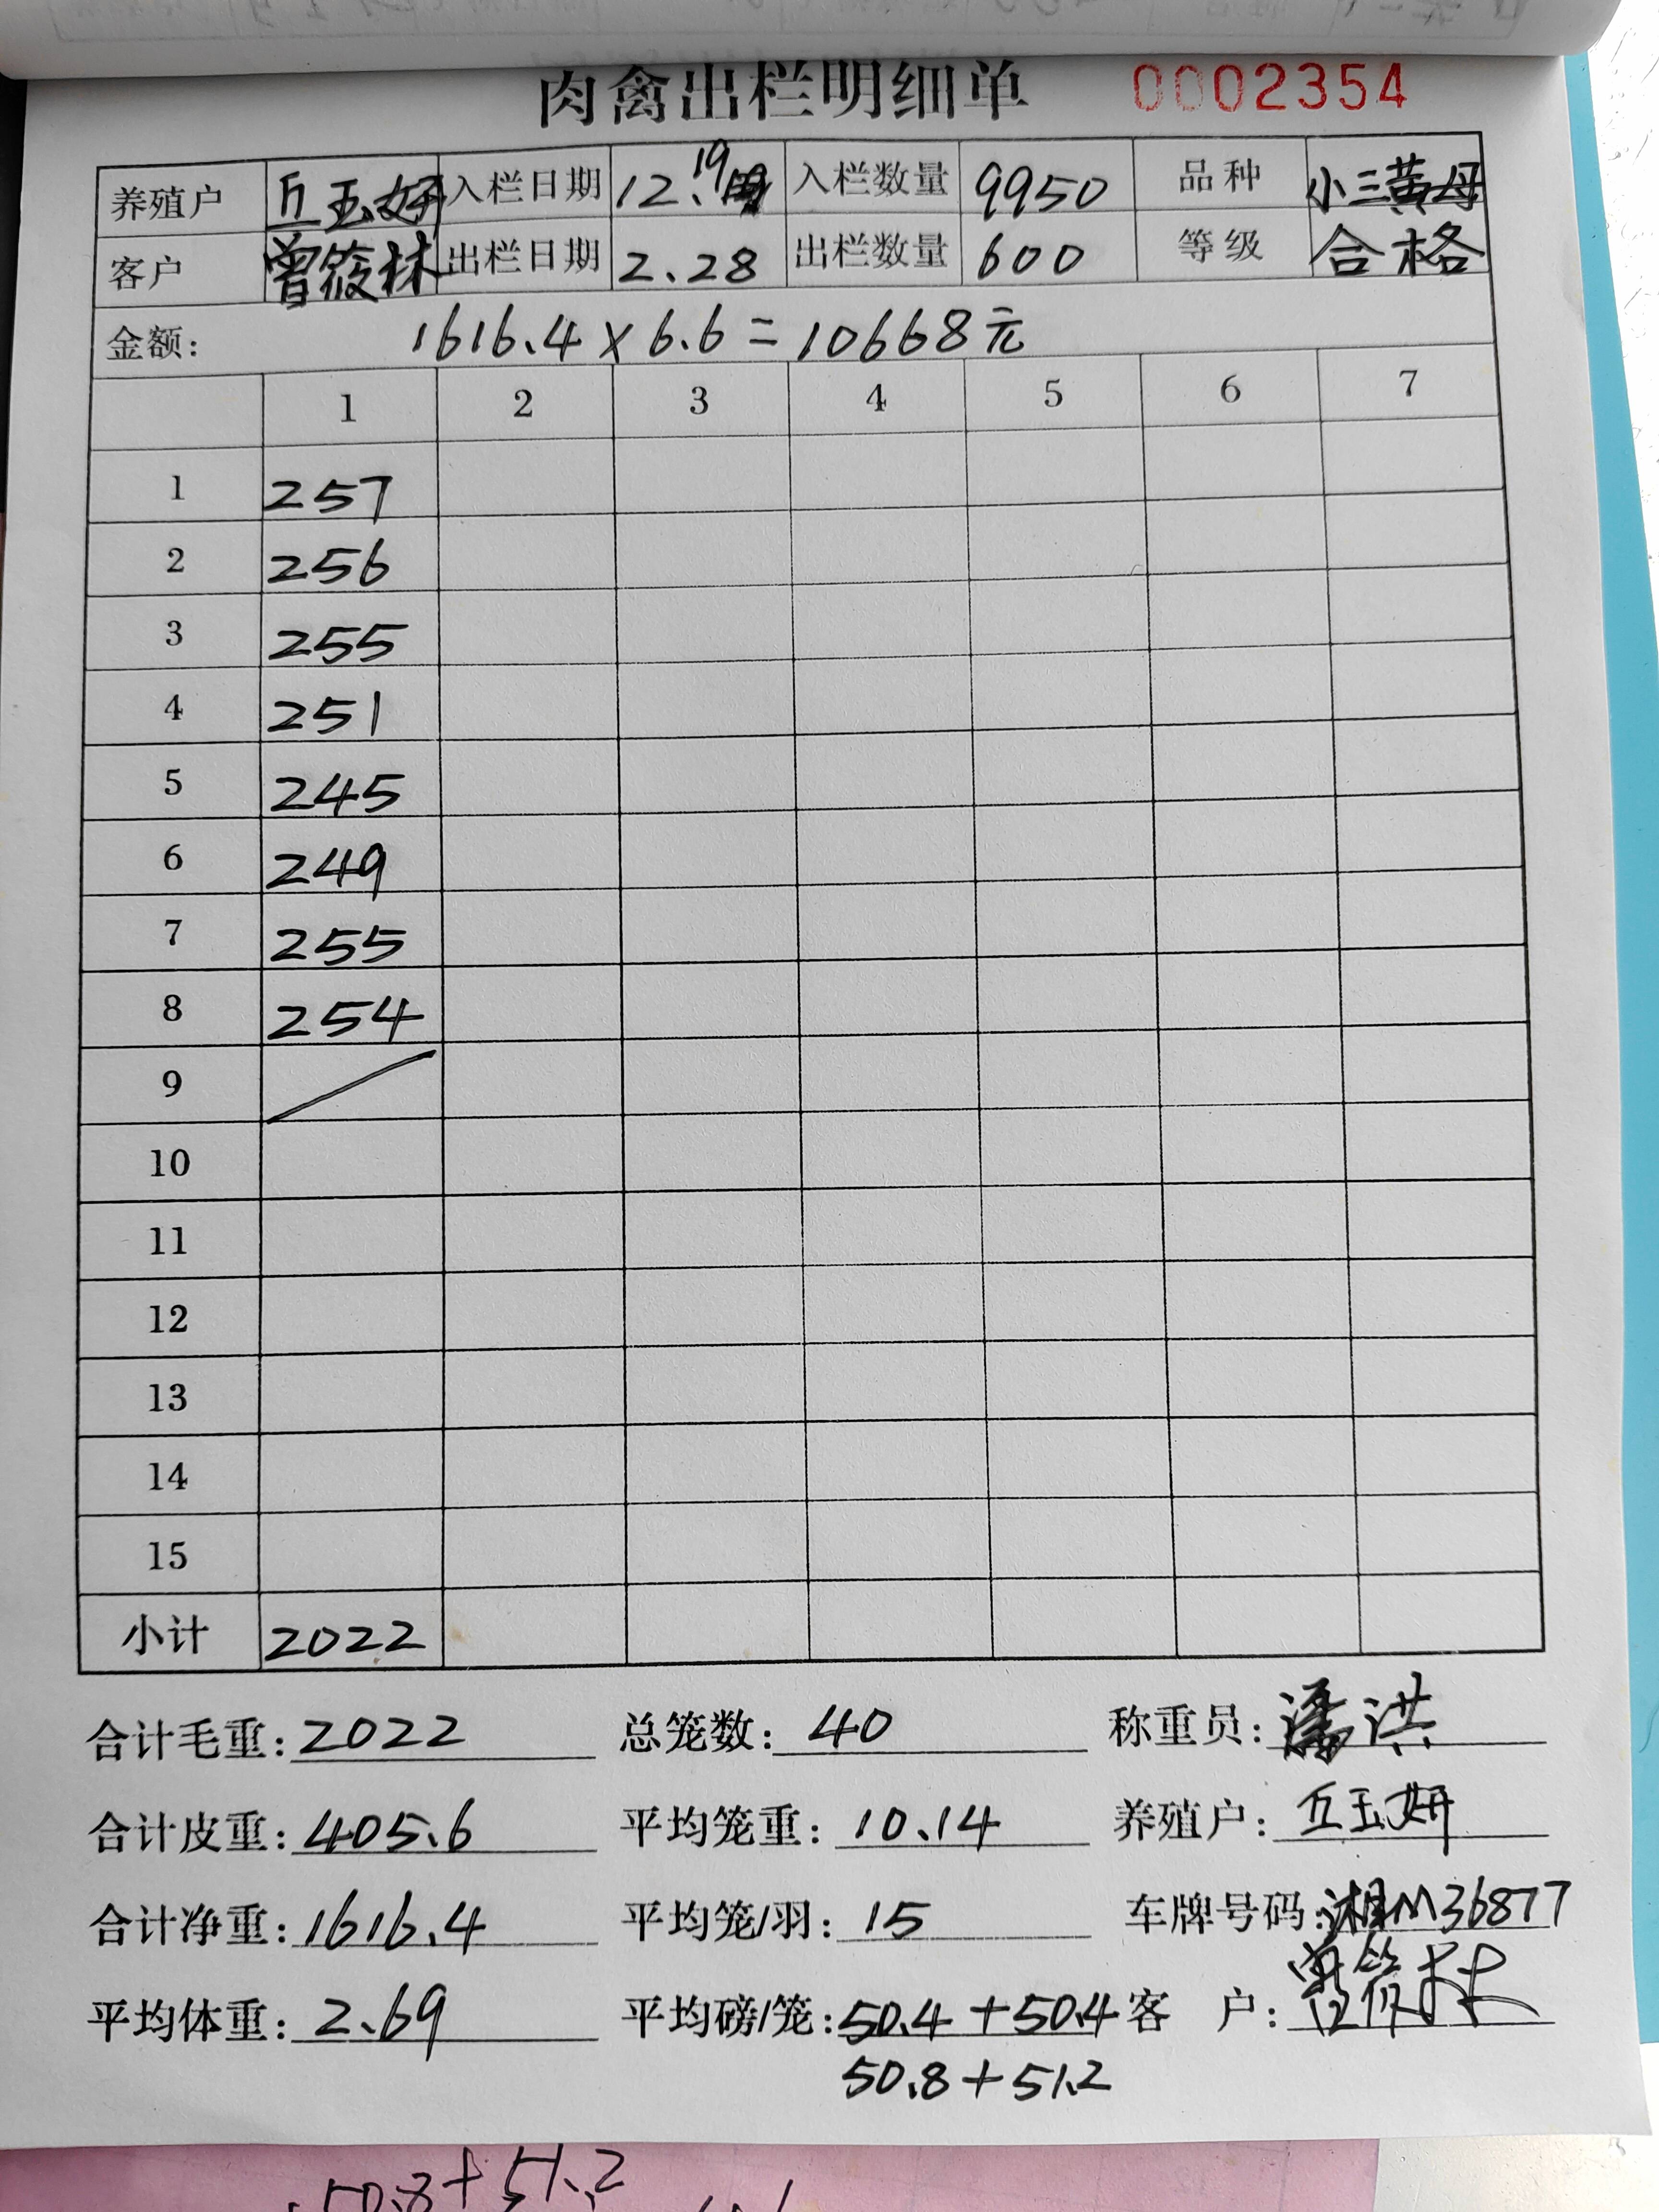 肉禽出栏明细单 0002354
养殖户 丘玉妍 入栏日期 12.19 入栏数量 9950 品种 小三黄母
客户 曾筱林 出栏日期 2.28 出栏数量 600 等级 合格
金额: 1616.4×6.6=10668元
1 2 3 4 5 6 7
1 257
2 256
3 255
4 251
5 245
6 249
7 255
8 254
9
10
11
12
13
14
15
小计 2022
合计毛重: 2022 总笼数: 40 称重员: 潘洪
合计皮重: 405.6 平均笼重: 10.14 养殖户: 丘玉妍
合计净重: 1616.4 平均笼/羽: 15 车牌号码: 湘M36877
平均体重: 2.69 平均磅/笼: 50.4+50.4 客户: 曾筱林
50.8+51.2
50.8+51.2